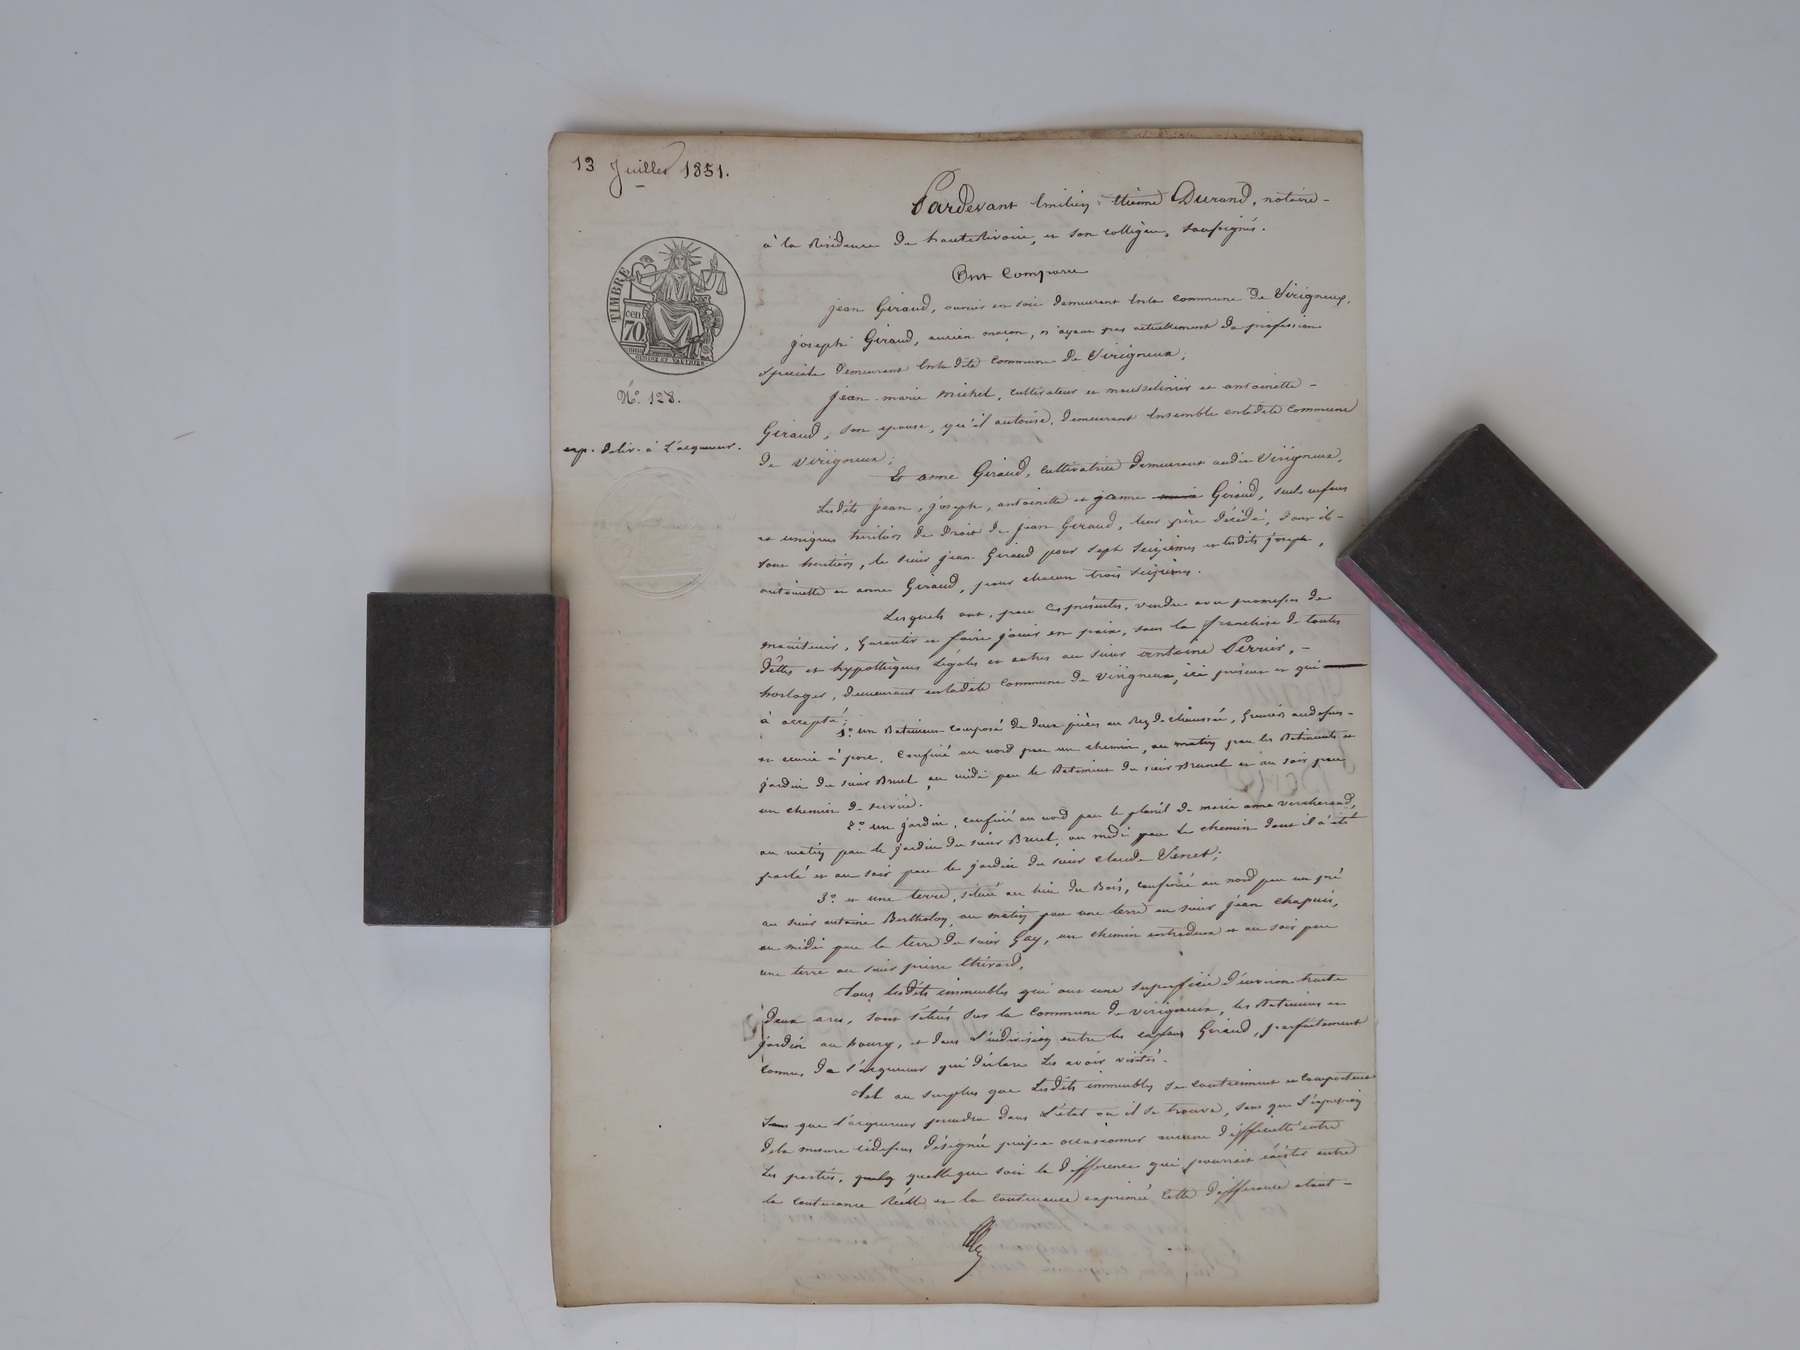 13 Juillet 1851.
TIMBRE
cen
70
N.° 128.
exp. deliv. à L'acquereur.
Pardevant Emilien-Etienne Durand, notaire -
à la Résidence de hauteRivoire, et son collègue, soussignés.
Ont Comparu
jean Giraud, ouvrier en soie demeurant en la commune de Virigneux,
joseph Giraud, ancien maçon, n'ayant pas actuellement de profession
spéciale demeurant en la dite commune de Virigneux;
jean-marie michel, cultivateur et mousselinier et antoinette -
Giraud, son epouse, qu'il autorise, demeurant Ensemble en ladite commune
de Virigneux;
Et anne Giraud, cultivatrice demeurant audit Virigneux,
Lesdits jean, joseph, antoinette et janne Giraud, seuls enfans
et uniques héritiers de Droit de jean Giraud, leur père décédé, dont ils -
sont heritiers, le sieur jean Giraud pour sept seizièmes et lesdits joseph,
antoinette et anne Giraud, pour chacun trois seizièmes.
Lesquels ont, par ces présentes, vendu avec promesse de
maintenir, garantir et faire jouir en paix, sous la franchise de toutes
dêttes et hypothèques légales et autres au sieur antoine Perrier, -
horloger, demeurant en ladite commune de Virigneux, ici présent et qui
à accepté;
1.° un Batiment composé de deux pièces au Rez de chaussée, Greniers audessus -
et ecurie à porc, Confiné au nord par un chemin, au matin par les Batiments et
jardin du sieur Bruel, au midi par le Batiment du sieur Brunel et au soir par
un chemin de servie.
2.° un jardin, confiné au nord par le plaçil de marie anne vercherand,
au matin par le jardin du sieur Bruel, au midi par le chemin dont il a été
parlé et au soir par le jardin du sieur claude Venet;
3.° et une terre, située au lieu du Bois, confinée au nord par un pré
au sieur antoine Bertholon, au matin par une terre au sieur jean chapuis,
au midi par la terre du sieur Gay, un chemin entredeux et au soir par
une terre au sieur pierre Thivard,
Tous lesdits immeubles qui ont une superficie d'environ trente
deux ares, sont situés sur la commune de virigneux, les Batiments et
jardin au bourg, et dans L'indivision entre les enfans Giraud, parfaitement
connus de l'acquereur qui déclare Les avoir visités.
Tel au surplus que Lesdits immeubles se contiennent et comportent
que l'acquereur prendra dans L'état où il se trouve, sans que L'expression
de la mesure cidessus désignée puisse occasionner aucune difficulté entre
Les parties, quelle que soit la différence qui pourrait éxister entre
la contenance Réélle et la contenance exprimée cette différence etant -